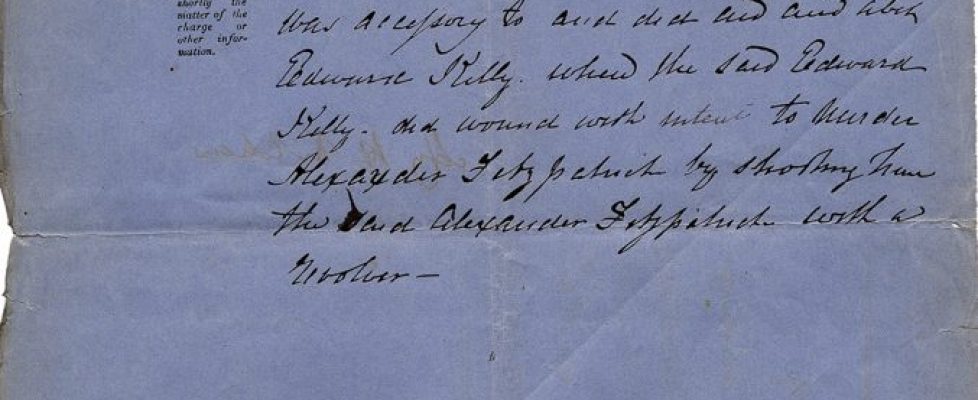 shortly the
matter of the
charge or
other infor-
mation.
was accessory to and did aid and abet
Edward Kelly. when the said Edward
Kelly. did wound with intent to Murder
Alexander Fitzpatrick by shooting him
the said Alexander Fitzpatrick with a
revolver —